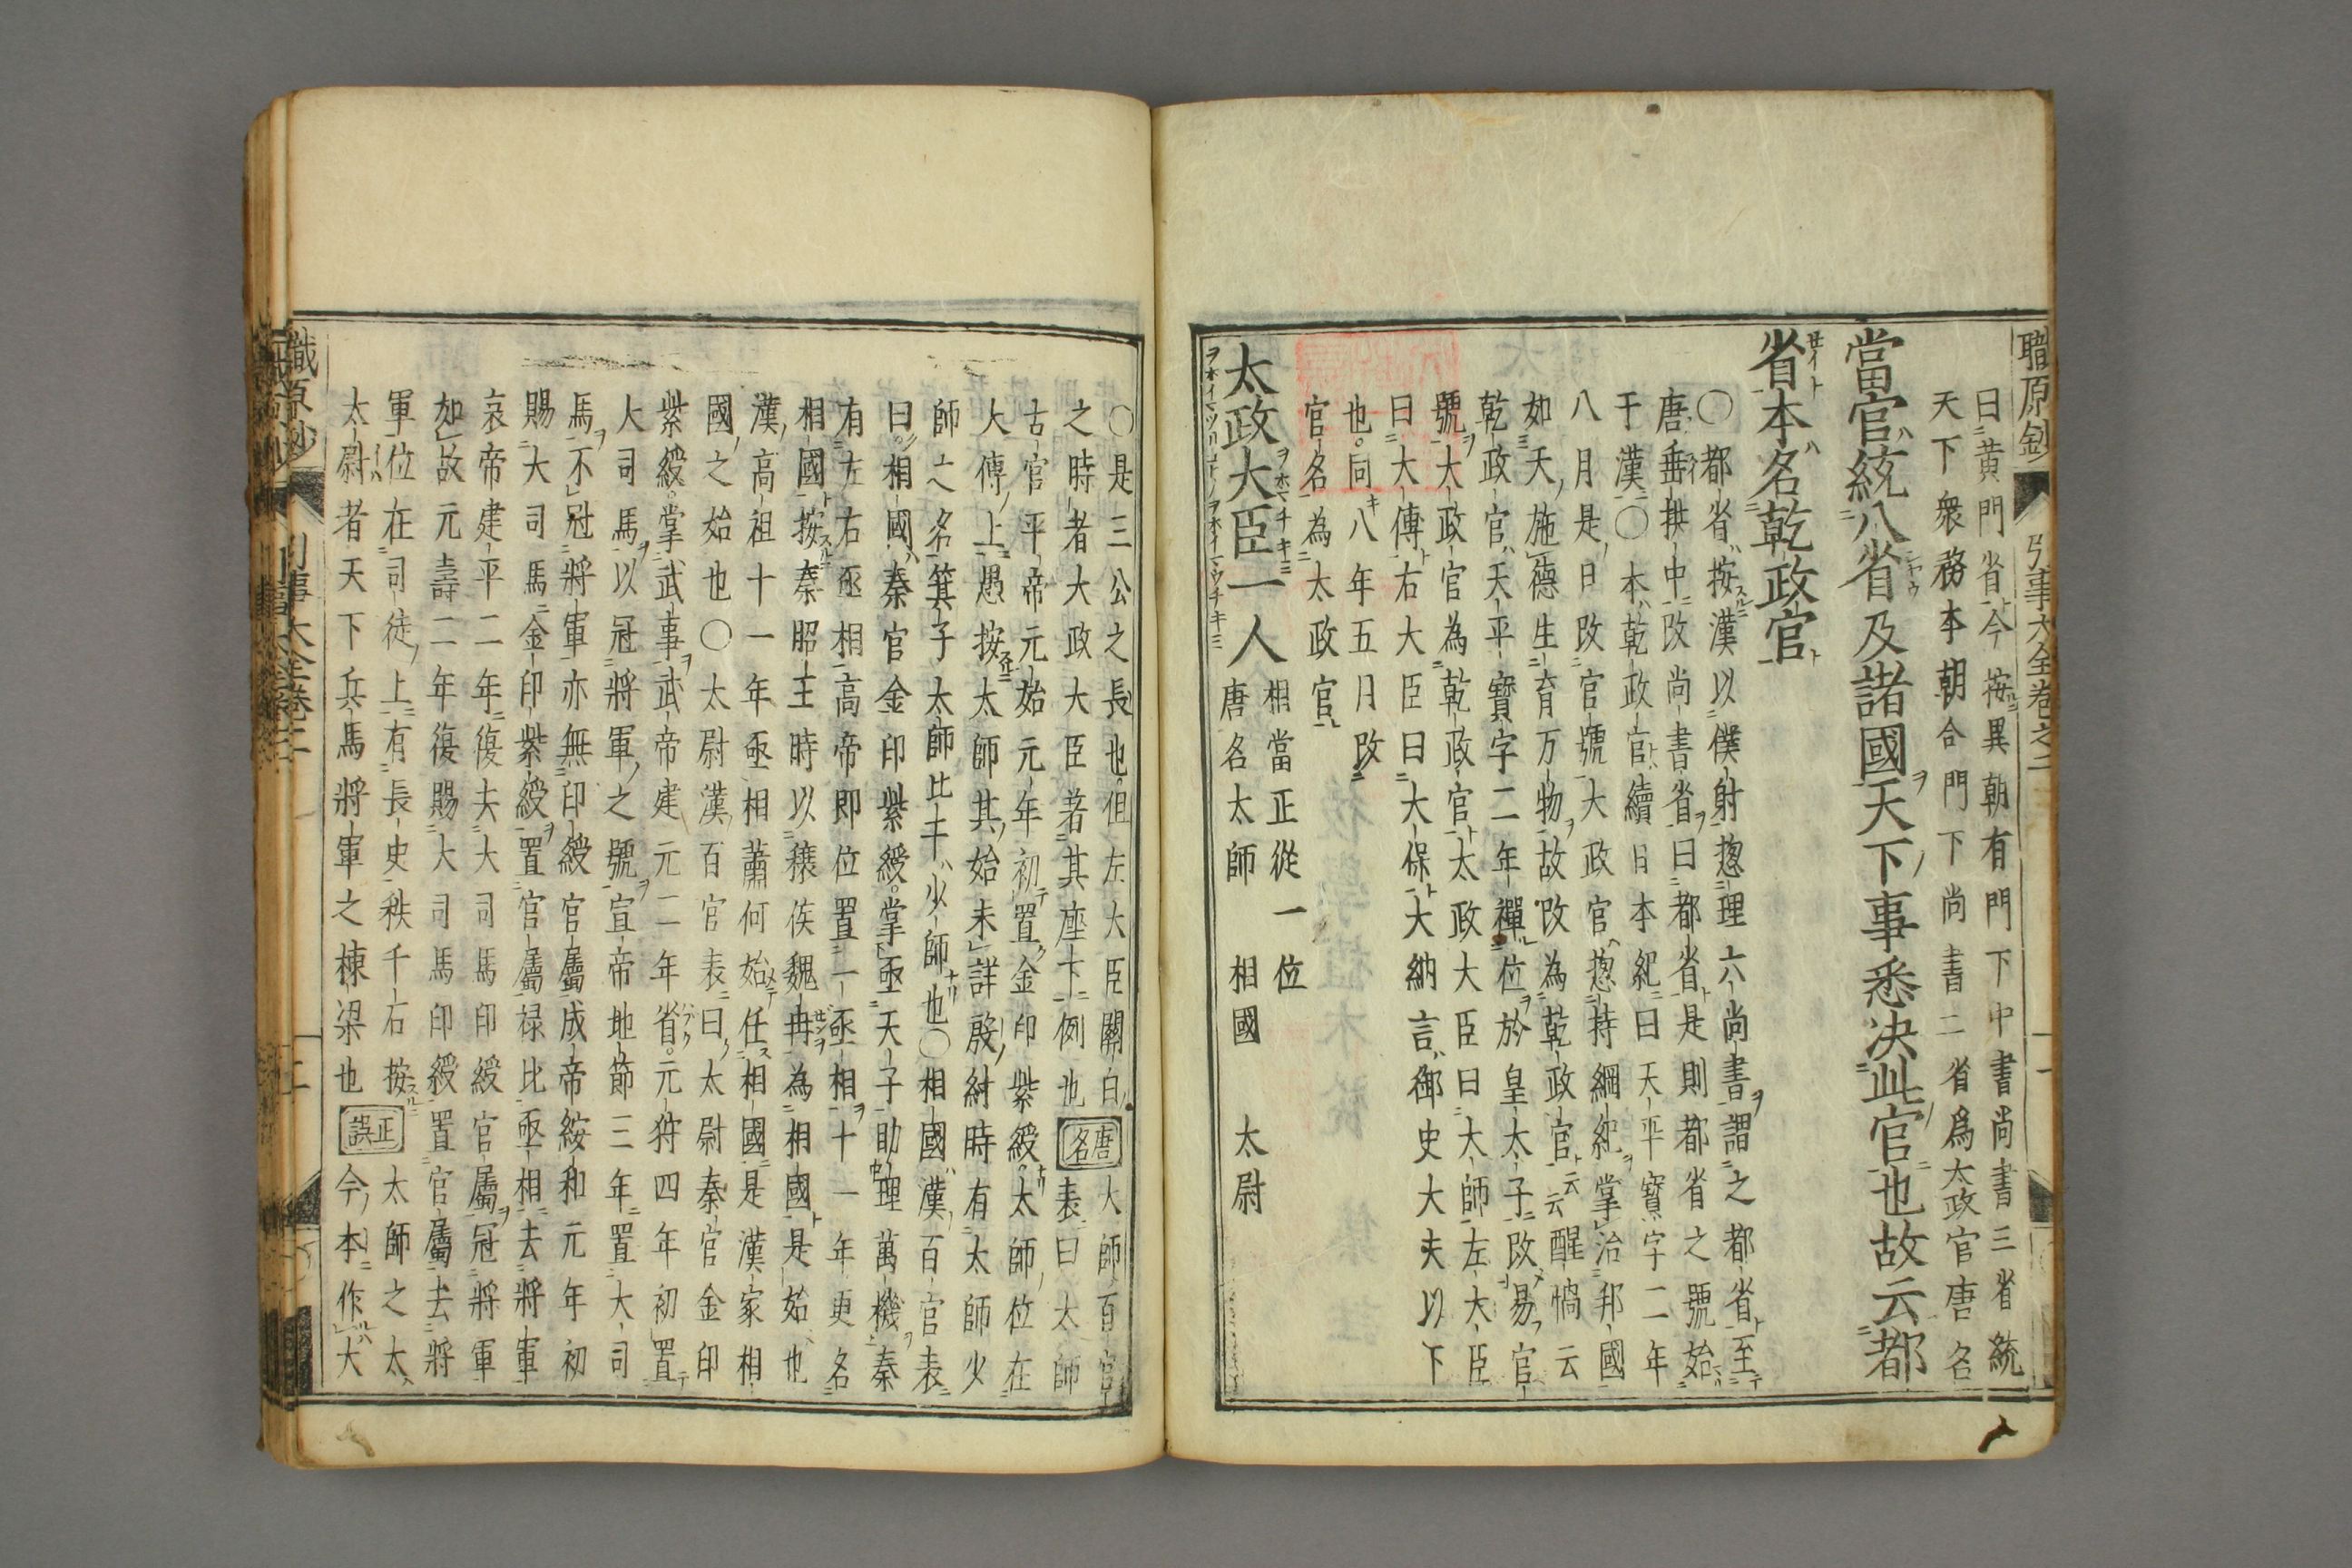 職原鈔 引事大全卷之二
曰黄門省今按異朝有門下中書尚書三省統
天下衆務本朝合門下尚書二省為太政官唐名
當官統八省及諸國天下事悉決此官也故云都
省本名乾政官
〇都省按漢以僕射揔理六尚書謂之都省至
唐垂拱中改尚書省曰都省是則都省之號始
于漢〇本乾政官續日本紀曰天平寳字二年
八月是日改官號大政官揔持綱紀掌治邦國
如天施德生育万物故改為乾政官云云醒悩云
乾政官天平寳字二年禪位於皇太子改易官
號太政官為乾政官太政大臣曰大師左大臣
曰大傳右大臣曰大保大納言御史大夫以下
也同八年五月改
官名為太政官
太政大臣一人 相當正從一位
唐名太師 相國 太尉
〇是三公之長也但左大臣關白
之時者大政大臣著其座下例也 唐名 大師百官
表曰太師
古官平帝元始元年初置金印紫綬太師位在
大傅上愚按太師其始未詳殷紂時有太師少
師之名箕子太師比干少師也〇相國漢百官表
曰相國秦官金印紫綬掌亟天子助理萬機秦
有左右亟相高帝即位置一亟相十一年更名
相國按秦昭王時以穰侯魏冉為相國是始也
漢高祖十一年亟相蕭何始任相國是漢家相
國之始也〇太尉漢百官表曰太尉秦官金印
紫綬掌武事武帝建元二年省元狩四年初置
大司馬以冠將軍之號宣帝地節三年置大司
馬不冠將軍亦無印綬官屬成帝綏和元年初
賜大司馬金印紫綬置官屬禄比亟相去將軍
哀帝建平二年復去大司馬印綬官屬冠將軍
如故元壽二年復賜大司馬印綬置官屬去將
軍位在司徒上有長史秩千石按太師之太
太尉者天下兵馬將軍之棟梁也 正誤 今本作大